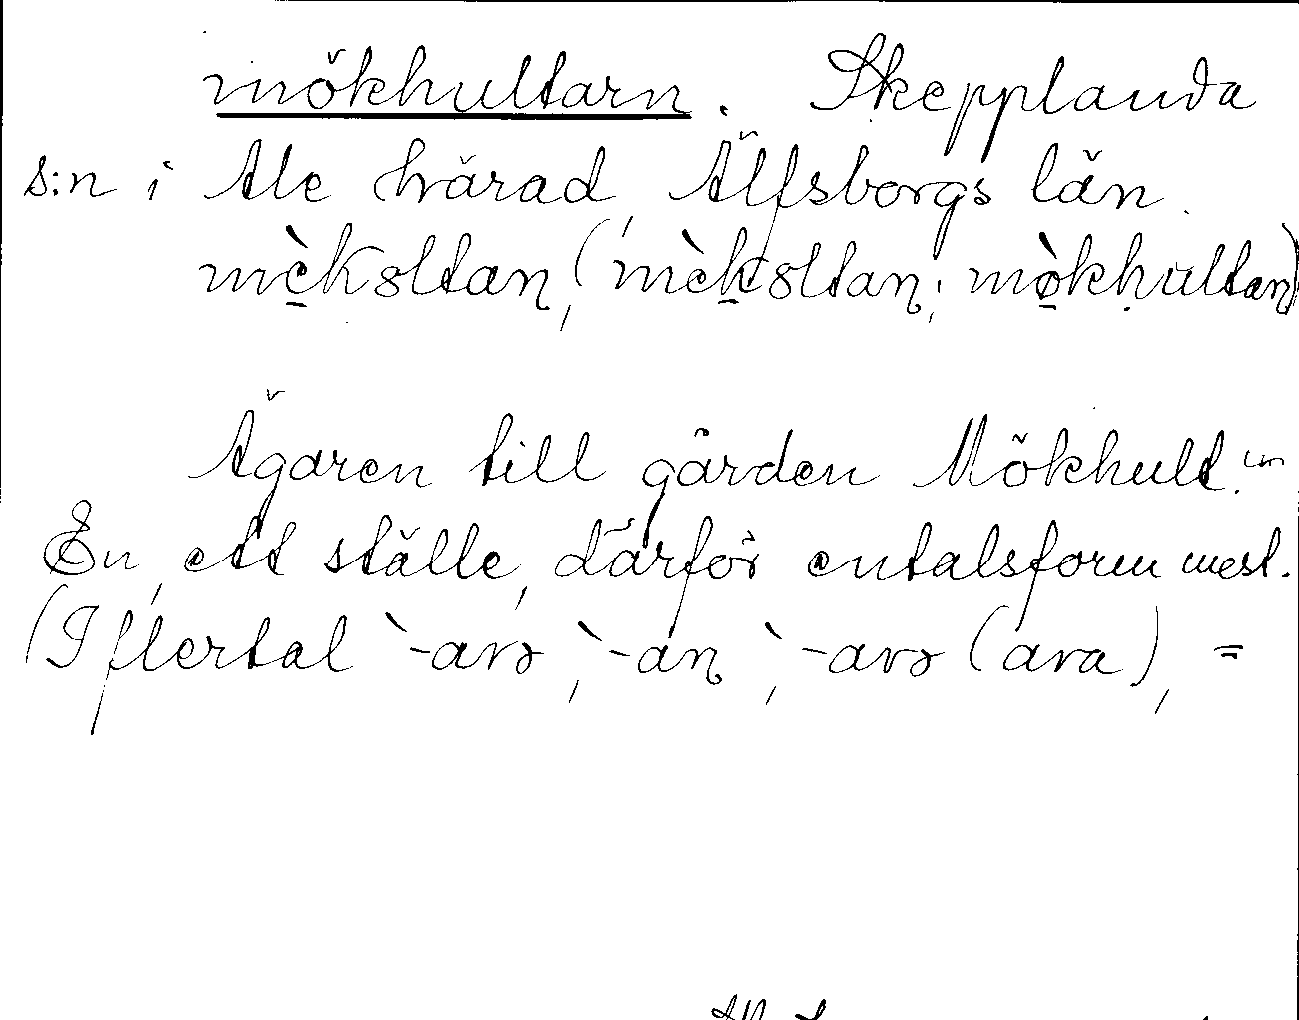 mökhultarn. Skepplanda
s:n i Ale härad, Älfsborgs län.
mè̠kɵltan, (mèkɵltan; mò̠khultan)
Ägaren till gården Mökhult.
En, ett ställe, därför entalsform mest.
(I flertal `-arə, `-an, `-arə (ara), =